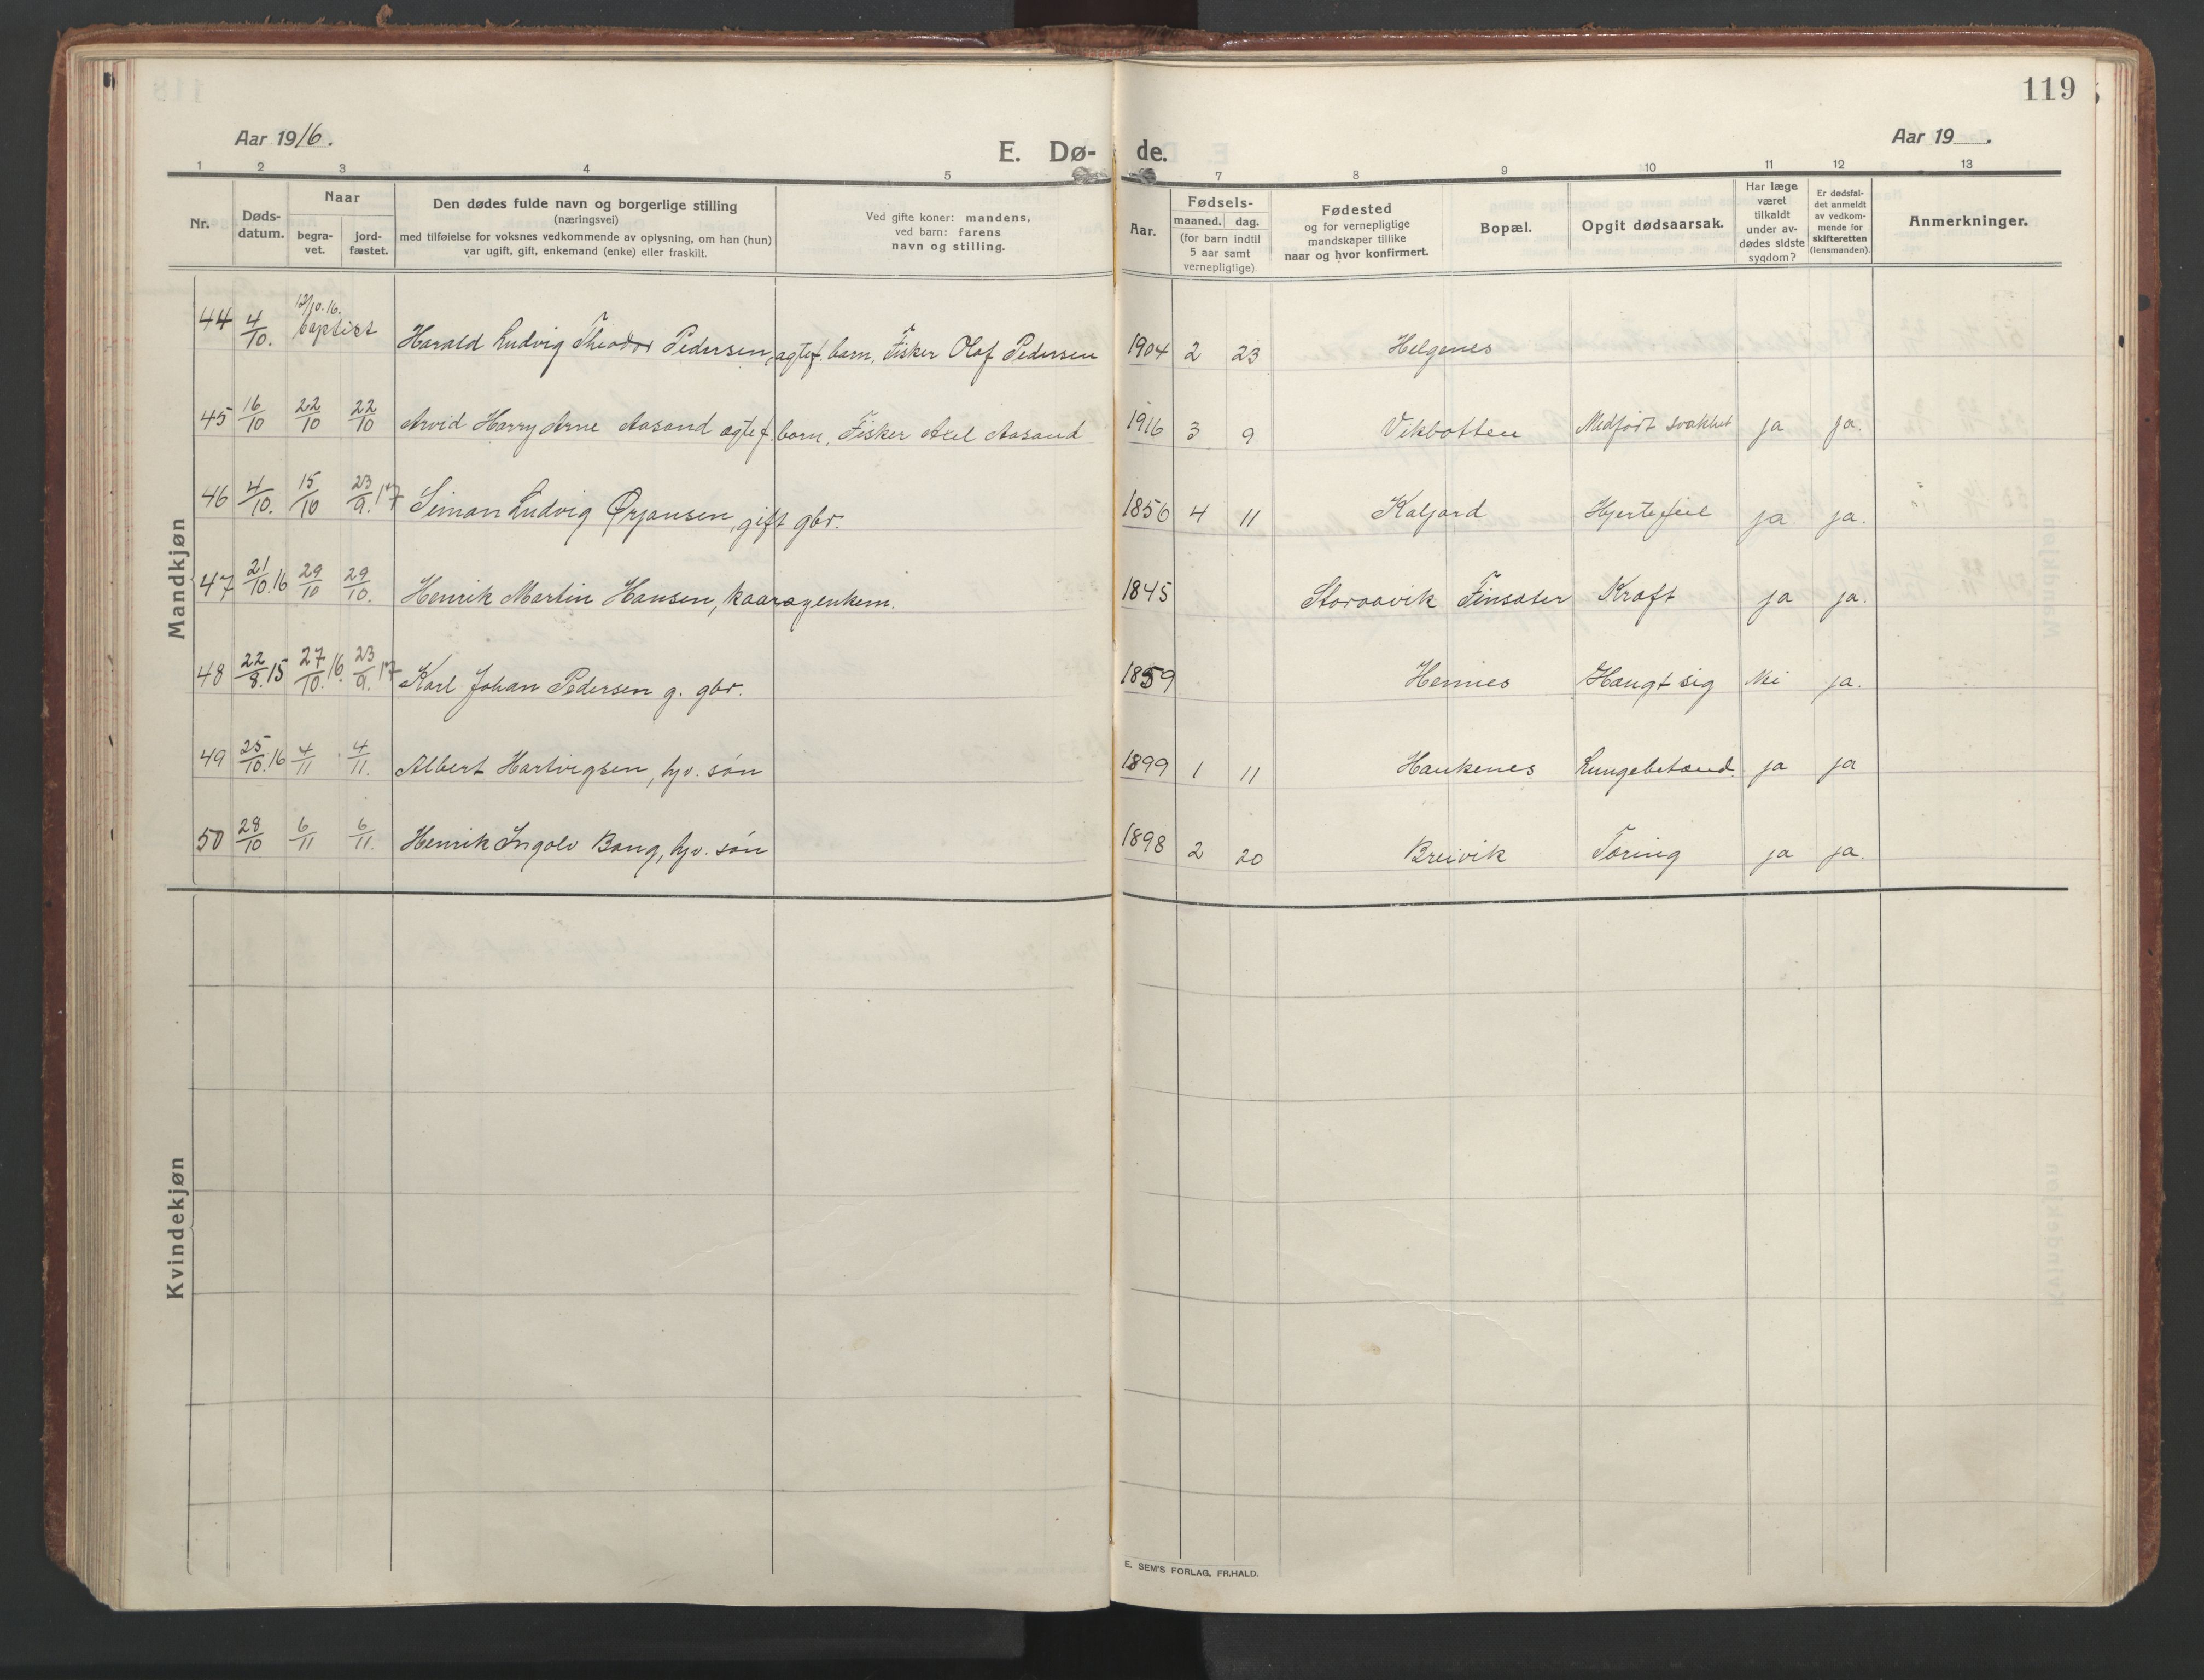 119
Aar 1916.
E. Dø- de.
Aar 19 .
1 2 3 4 5 7 8 9 10 11 12 13
Nr.
Døds-
datum.
Naar
begra-
vet.
jord-
fæstet.
Den dødes fulde navn og borgerlige stilling
(næringsvei)
med tilføielse for voksnes vedkommende av oplysning, om han (hun)
var ugift, gift, enkemand (enke) eller fraskilt.
Ved gifte koner: mandens,
ved barn: farens
navn og stilling.
Aar.
Fødsels-
maaned. dag.
(for barn indtil
5 aar samt
vernepligtige)
Fødested
og for vernepligtige
mandskaper tillike
naar og hvor konfirmert.
Bopæl.
Opgit dødsaarsak.
Har læge
været
tilkaldt
under av-
dødes sidste
sygdom?
Er dødsfal-
det anmeldt
av vedkom-
mende for
skifteretten
(lensmanden).
Anmerkninger.
Mandkjøn
44 4/10. 12/10.16. baptist Harald Ludvig Theodor Pedersen, ægtef. barn, Fisker Olaf Pedersen 1904 2 23 Helgenes
45 16/10 22/10 22/10 Arvid Harry Arne Aasand ægtef. barn, Fisker Axel Aasand 1916 3 9 Vikbotten Medført svakhet ja ja.
46 4/10. 15/10 23/9.17 Simon Ludvig Ørjansen, gift gbr. 1856 4 11 Kaljord Hjertefeil ja ja.
47 21/10.16 29/10 29/10. Henrik Martin Hansen, kaarogenkem. 1845 Storaavik Finsæter Kræft ja ja.
48 22/8.15 27/10.16. 23/9.17 Karl Johan Pedersen g. gbr. 1859 Hennes Hængt sig Nei ja.
49 25/10.16 4/11 4/11. Albert Hartvigsen, hjv. søn 1899 1 11 Haukenes Lungebetænd. ja ja
50 28/10 6/11 6/11. Henrik Ingolv Bang, hjv. søn 1898 2 20 Breivik Tæring ja ja.
Kvindekjøn
E. SEM'S FORLAG, FR.HALD.